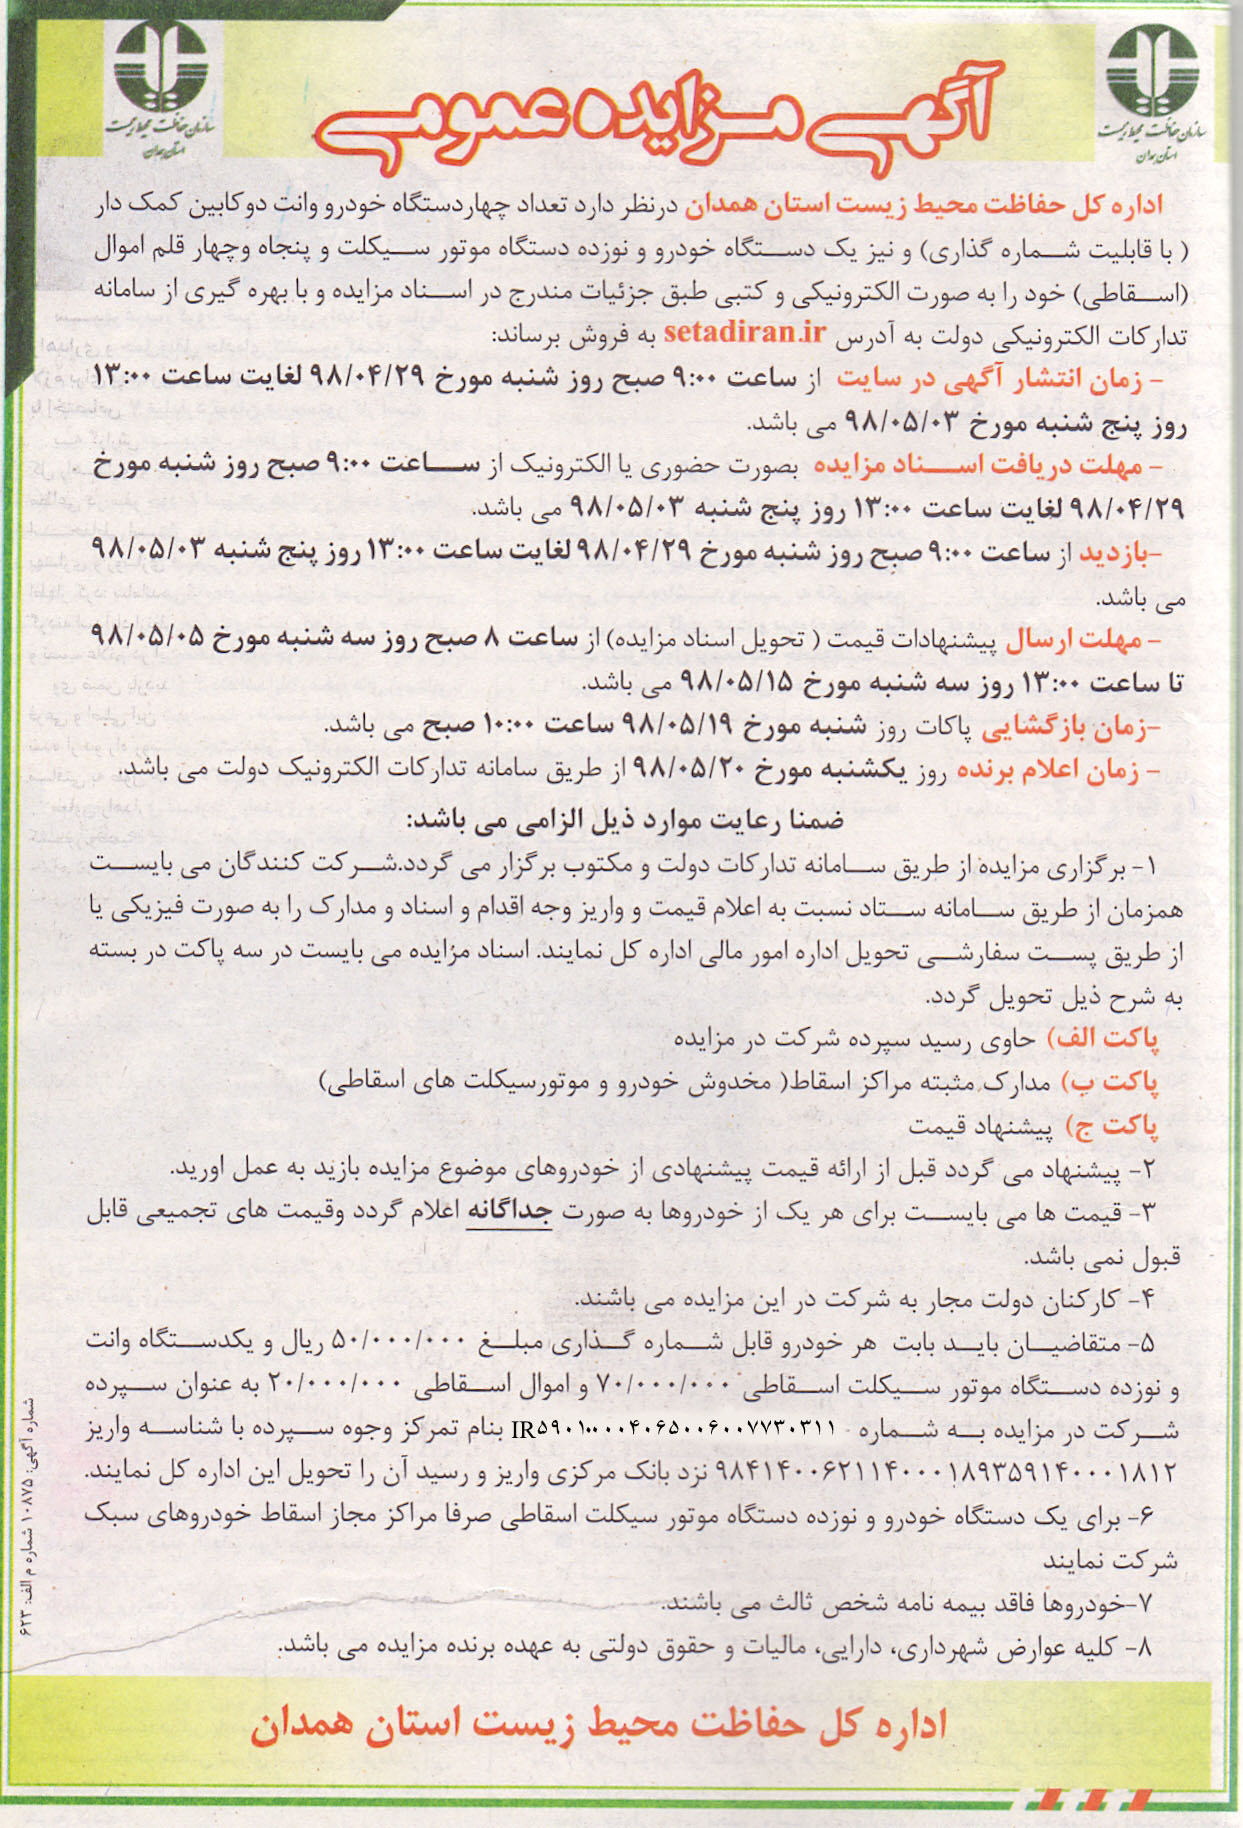 سازمان حفاظت محیط زیست
استان همدان
سازمان حفاظت محیط زیست
استان همدان
آگهی مزایده عمومی
اداره کل حفاظت محیط زیست استان همدان درنظر دارد تعداد چهاردستگاه خودرو وانت دوکابین کمک دار
( با قابلیت شماره گذاری) و نیز یک دستگاه خودرو و نوزده دستگاه موتور سیکلت و پنجاه وچهار قلم اموال
(اسقاطی) خود را به صورت الکترونیکی و کتبی طبق جزئیات مندرج در اسناد مزایده و با بهره گیری از سامانه
تدارکات الکترونیکی دولت به آدرس setadiran.ir به فروش برساند:
- زمان انتشار آگهی در سایت از ساعت ۹:۰۰ صبح روز شنبه مورخ ۹۸/۰۴/۲۹ لغایت ساعت ۱۳:۰۰
روز پنج شنبه مورخ ۹۸/۰۵/۰۳ می باشد.
- مهلت دریافت اسناد مزایده بصورت حضوری یا الکترونیک از ساعت ۹:۰۰ صبح روز شنبه مورخ
۹۸/۰۴/۲۹ لغایت ساعت ۱۳:۰۰ روز پنج شنبه ۹۸/۰۵/۰۳ می باشد.
-بازدید از ساعت ۹:۰۰ صبح روز شنبه مورخ ۹۸/۰۴/۲۹ لغایت ساعت ۱۳:۰۰ روز پنج شنبه ۹۸/۰۵/۰۳
می باشد.
- مهلت ارسال پیشنهادات قیمت ( تحویل اسناد مزایده) از ساعت ۸ صبح روز سه شنبه مورخ ۹۸/۰۵/۰۵
تا ساعت ۱۳:۰۰ روز سه شنبه مورخ ۹۸/۰۵/۱۵ می باشد.
-زمان بازگشایی پاکات روز شنبه مورخ ۹۸/۰۵/۱۹ ساعت ۱۰:۰۰ صبح می باشد.
- زمان اعلام برنده روز یکشنبه مورخ ۹۸/۰۵/۲۰ از طریق سامانه تدارکات الکترونیک دولت می باشد.
ضمنا رعایت موارد ذیل الزامی می باشد:
۱- برگزاری مزایده از طریق سامانه تدارکات دولت و مکتوب برگزار می گردد.شرکت کنندگان می بایست
همزمان از طریق سامانه ستاد نسبت به اعلام قیمت و واریز وجه اقدام و اسناد و مدارک را به صورت فیزیکی یا
از طریق پست سفارشی تحویل اداره امور مالی اداره کل نمایند. اسناد مزایده می بایست در سه پاکت در بسته
به شرح ذیل تحویل گردد.
پاکت الف) حاوی رسید سپرده شرکت در مزایده
پاکت ب) مدارک مثبته مراکز اسقاط( مخدوش خودرو و موتورسیکلت های اسقاطی)
پاکت ج) پیشنهاد قیمت
۲- پیشنهاد می گردد قبل از ارائه قیمت پیشنهادی از خودروهای موضوع مزایده بازید به عمل اورید.
۳- قیمت ها می بایست برای هر یک از خودروها به صورت جداگانه اعلام گردد وقیمت های تجمیعی قابل
قبول نمی باشد.
۴- کارکنان دولت مجار به شرکت در این مزایده می باشند.
۵- متقاضیان باید بابت هر خودرو قابل شماره گذاری مبلغ ۵۰/۰۰۰/۰۰۰ ریال و یکدستگاه وانت
و نوزده دستگاه موتور سیکلت اسقاطی ۷۰/۰۰۰/۰۰۰ و اموال اسقاطی ۲۰/۰۰۰/۰۰۰ به عنوان سپرده
شرکت در مزایده به شماره IR۵۹۰۱۰۰۰۰۴۰۶۵۰۰۶۰۰۷۷۳۰۳۱۱ بنام تمرکز وجوه سپرده با شناسه واریز
۹۸۴۱۴۰۰۶۲۱۱۴۰۰۰۱۸۹۳۵۹۱۴۰۰۰۱۸۱۲ نزد بانک مرکزی واریز و رسید آن را تحویل این اداره کل نمایند.
۶- برای یک دستگاه خودرو و نوزده دستگاه موتور سیکلت اسقاطی صرفا مراکز مجاز اسقاط خودروهای سبک
شرکت نمایند
۷-خودروها فاقد بیمه نامه شخص ثالث می باشند.
۸- کلیه عوارض شهرداری، دارایی، مالیات و حقوق دولتی به عهده برنده مزایده می باشد.
شماره آگهی: ۱۰۸۷۵ شماره م الف: ۶۲۳
اداره کل حفاظت محیط زیست استان همدان